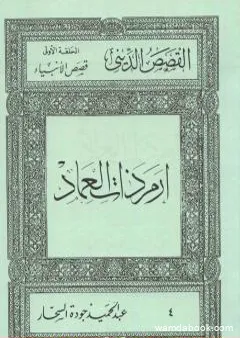 القصص الديني
الحلقة الأولى
قصص الأنبياء
ارم ذات العماد
عبد الحميد جودة السحار
٤
wamdabook.com